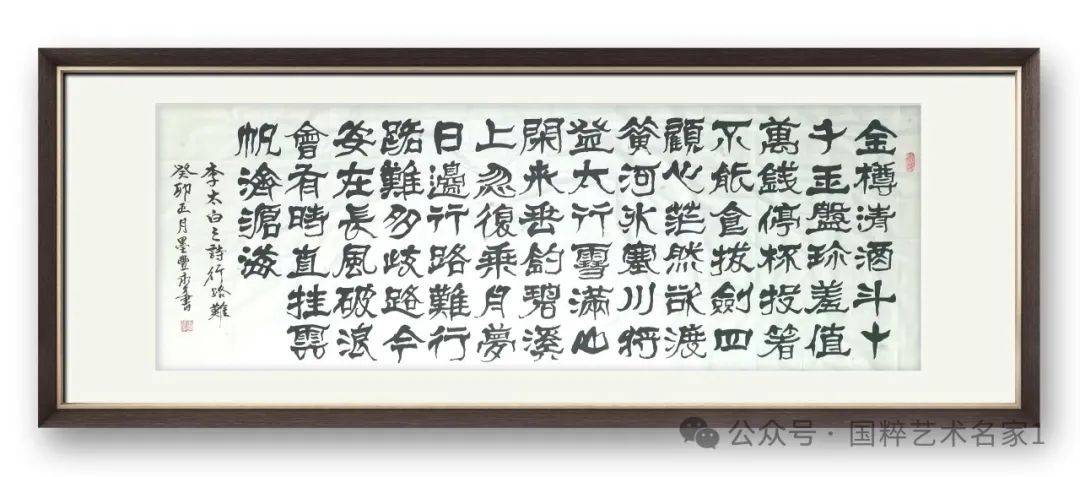 金樽清酒斗十
千玉盤珎羞值
萬錢停杯投箸
不能食拔劍四
顧心茫然欲渡
黃河冰塞川將
登太行雪滿山
閑来垂釣碧溪
上忽復乘月夢
日邊行路難行
路難多歧路今
安在長風破浪
會有時直挂雲
帆濟滄海
李太白之詩行路難
癸卯正月墨豐書
公众号 · 国粹艺术名家1